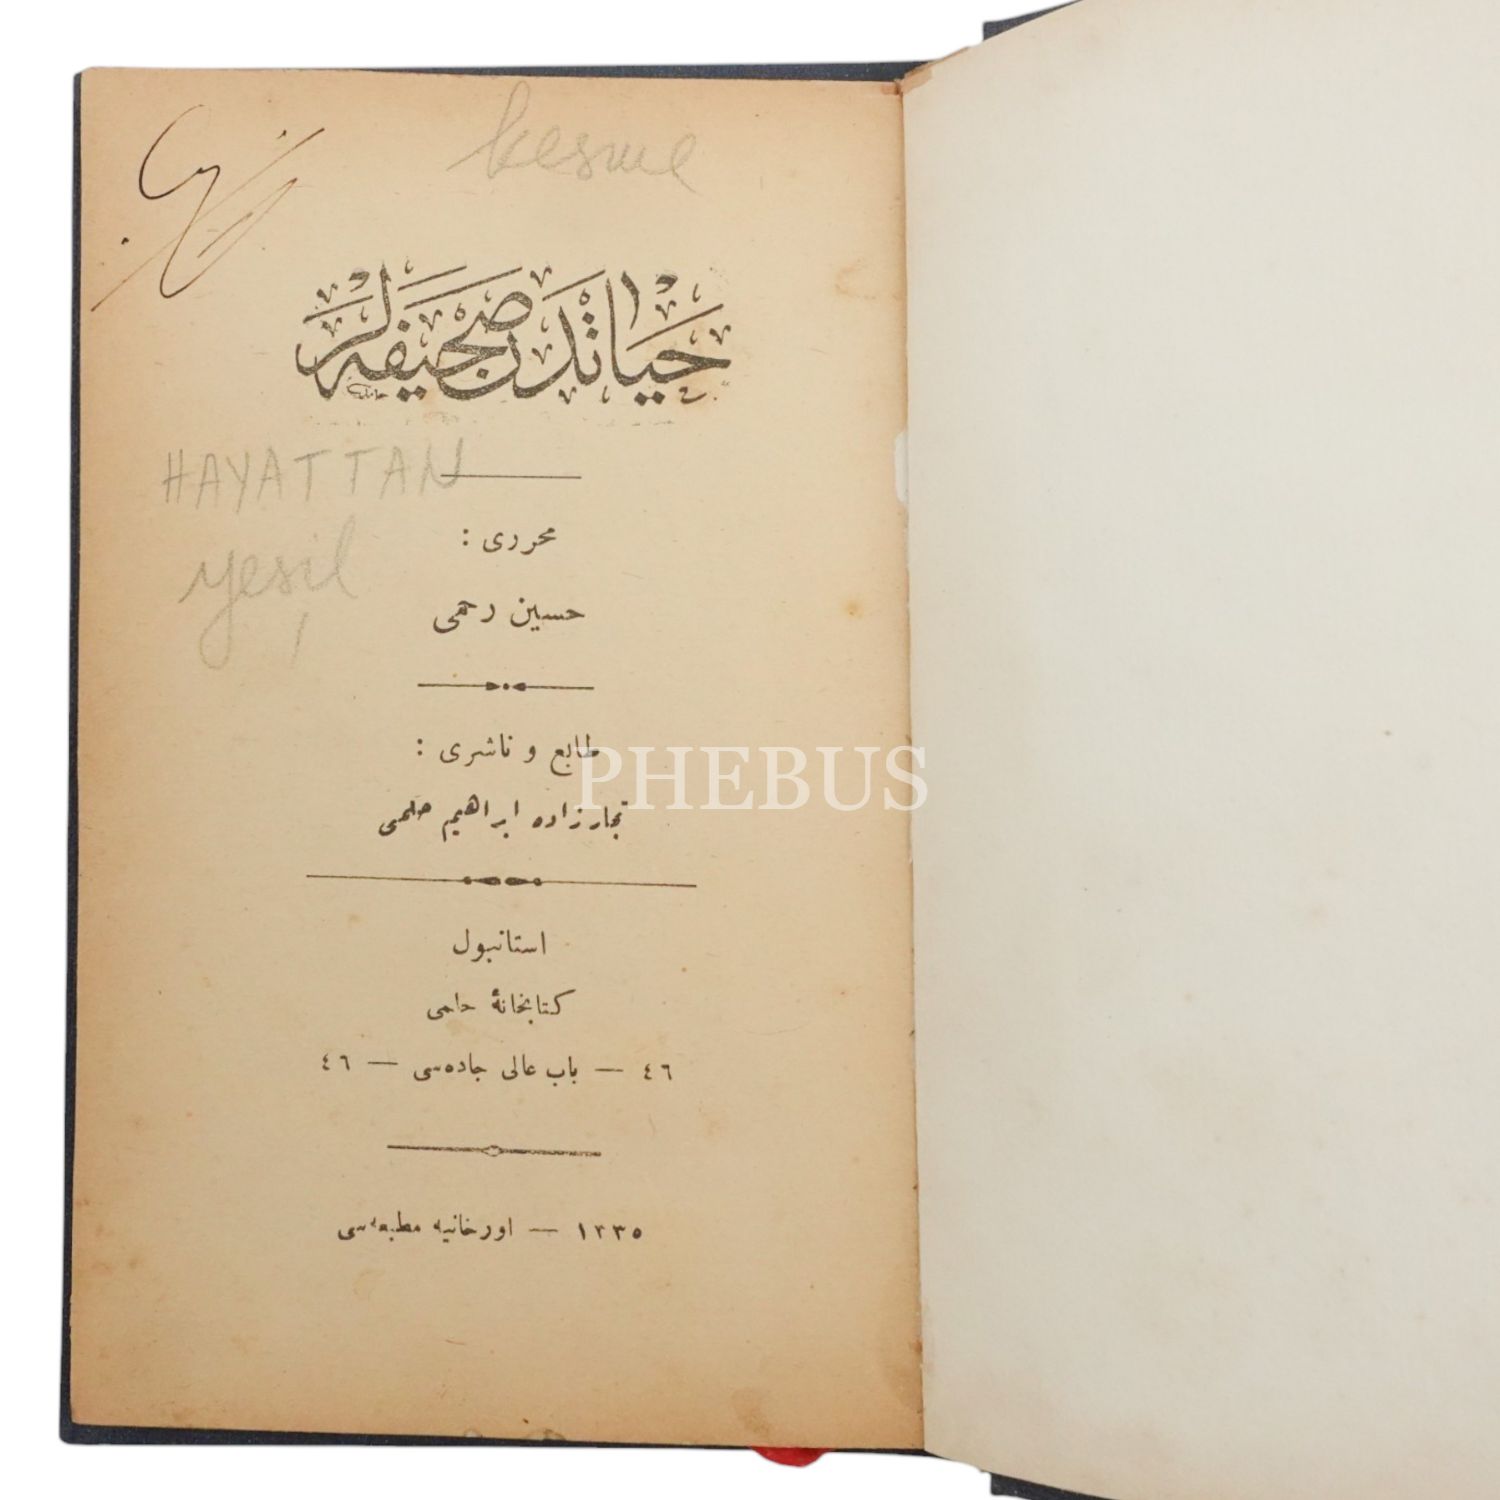 kesme
حیاتدن صحیفه‌لر
HAYATTAN
محرری :
yeşil
حسین رحمی
طابع و ناشری :
PHEBUS
تجارزاده ابراهیم حلمی
استانبول
كتابخانهٔ حلمی
٤٦ — باب عالی جاده‌سی — ٤٦
١٣٣٥ — اورخانیه مطبعه‌سی